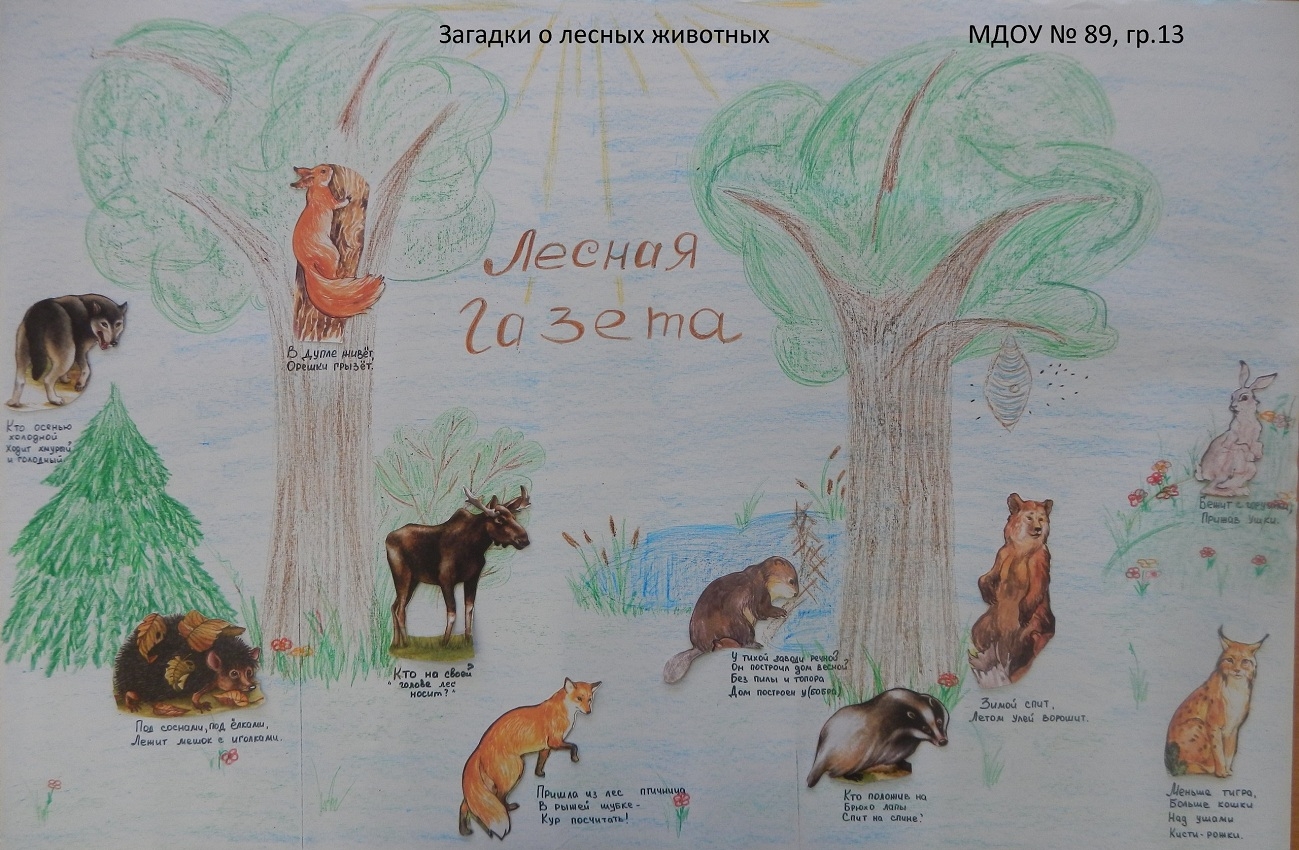 Загадки о лесных животных
МДОУ № 89, гр.13
Лесная
Газета
В дупле живёт,
Орешки грызёт.
Кто осенью
холодной
Ходит хмурый
и голодный
Кто на своей
"голове лес
носит?"
Под соснами, под ёлками,
Лежит мешок с иголками.
Пришла из лес птичница
В рыжей шубке-
Кур посчитать!
У тихой заводи речной
Он построил дом весной
Без пилы и топора
Дом построен у(бобра)
Кто положив на
Брюхо лапы
Спит на спине?
Зимой спит,
Летом улей ворошит.
Бежит с
Прижав ушки.
Меньше тигра,
Больше кошки
Над ушами
Кисти-рожки.